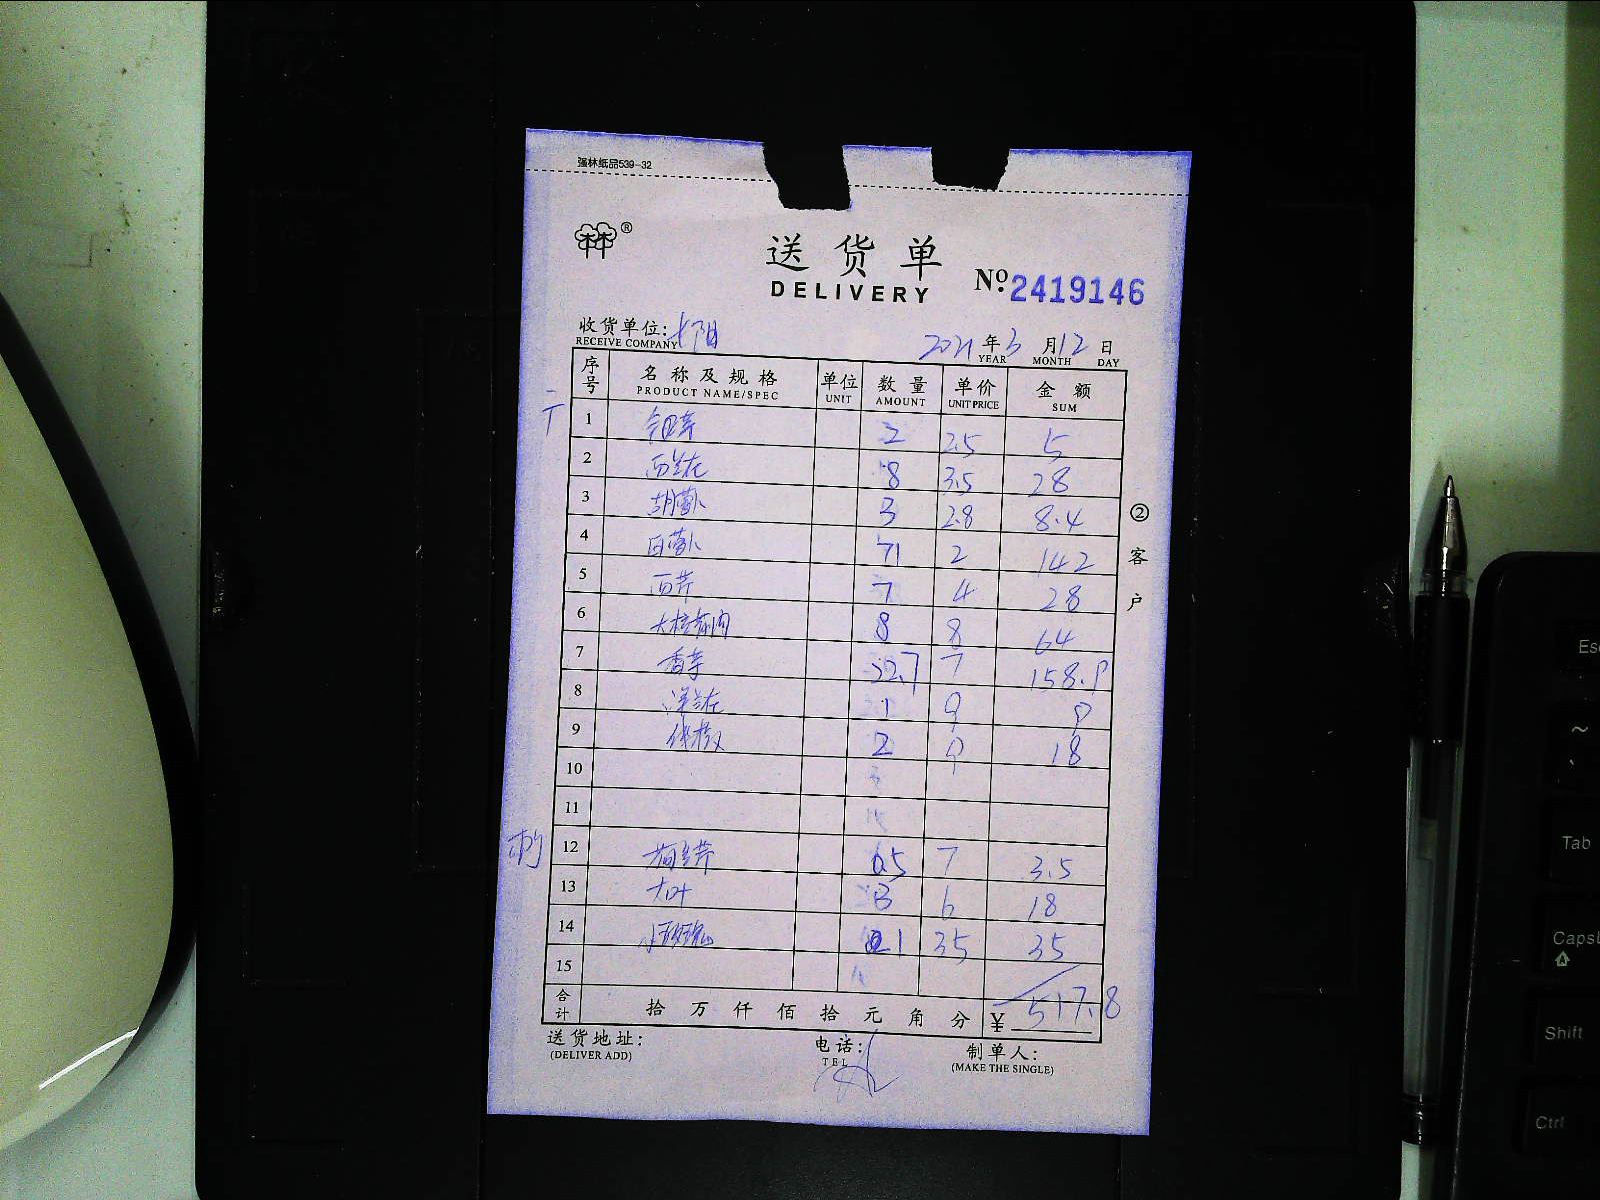 强林纸品539-32
®
送货单
DELIVERY
No.2419146
收货单位:
RECEIVE COMPANY
2021年3月12日
YEAR MONTH DAY
序号 名称及规格 单位 数量 单价 金额
PRODUCT NAME/SPEC UNIT AMOUNT UNIT PRICE SUM
1 2 2.5 5
2 西兰花 8 3.5 28
3 胡萝卜 3 2.8 8.4
4 白萝卜 71 2 142
5 西芹 7 4 28
6 8 8 64
7 22.7 7 158.9
8 1 9 9
9 2 9 18
10
11
12 0.5 7 3.5
13 大叶 3 6 18
14 1 35 35
15
合计 拾万仟佰拾元角分 ¥517.8
②客户
送货地址: 电话: 制单人:
(DELIVER ADD) TEL (MAKE THE SINGLE)
Esc
~
Tab
Caps
Shift
Ctrl